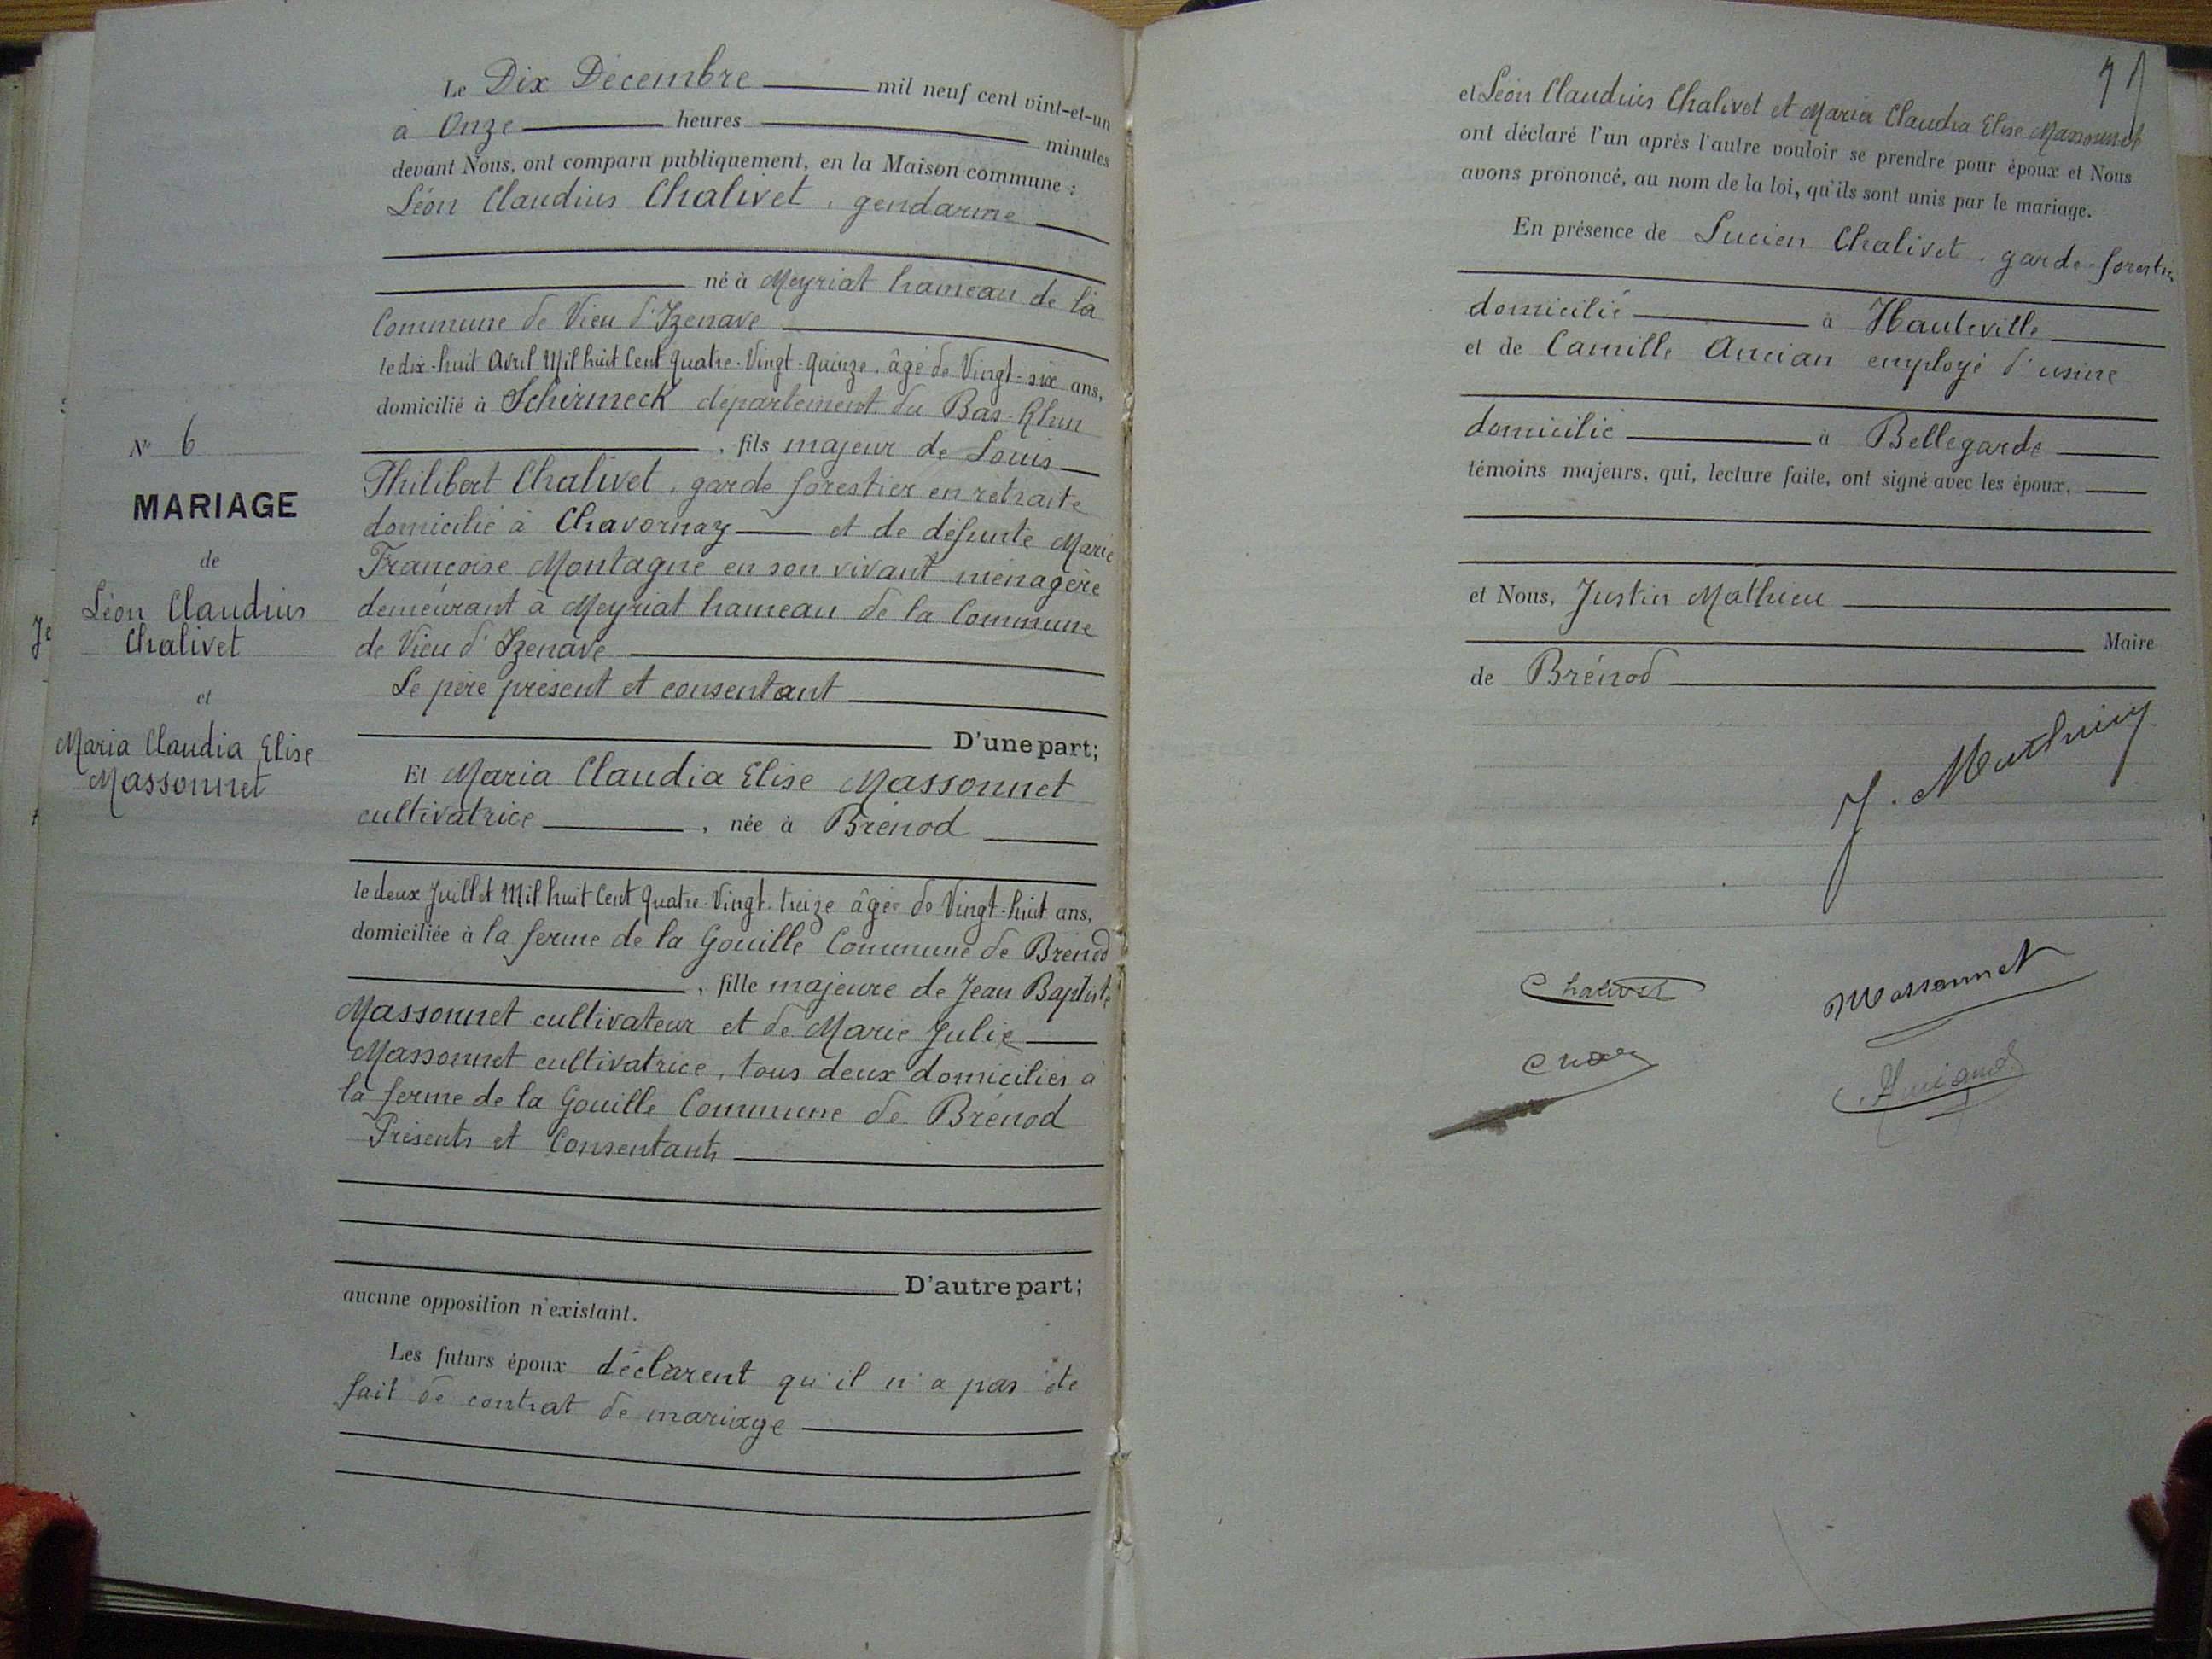 Le Dix Décembre mil neuf cent vint-et-un
à Onze heures minutes
devant Nous, ont comparu publiquement, en la Maison commune :
Léon Claudius Chalivet, gendarme
né à Meyriat hameau de la
Commune de Vieu d'Izenave
le dix-huit Avril Mil huit Cent Quatre-Vingt-Quinze, âgé de Vingt-six ans,
domicilié à Schirmeck département du Bas-Rhin
, fils majeur de Louis
Philibert Chalivet, garde forestier en retraite
domicilié à Chavornay et de défunte Marie
Françoise Montagne en son vivant ménagère
demeurant à Meyriat hameau de la Commune
de Vieu d'Izenave
Le père présent et consentant
D'une part;
Et Maria Claudia Elise Massonnet
cultivatrice, née à Brénod
le deux Juillet Mil huit Cent Quatre-Vingt-treize âgée de Vingt-huit ans,
domiciliée à la ferme de la Gouille Commune de Brénod
, fille majeure de Jean Baptiste
Massonnet cultivateur et de Marie Julie
Massonnet cultivatrice, tous deux domiciliés à
la ferme de la Gouille Commune de Brénod
Présents et Consentants
D'autre part;
aucune opposition n'existant.
Les futurs époux déclarent qu'il n'a pas été
fait de contrat de mariage
N° 6
MARIAGE
de
Léon Claudius
Chalivet
et
Maria Claudia Elise
Massonnet
et Léon Claudius Chalivet et Maria Claudia Elise Massonnet
ont déclaré l'un après l'autre vouloir se prendre pour époux et Nous
avons prononcé, au nom de la loi, qu'ils sont unis par le mariage.
En présence de Lucien Chalivet, garde-forestier
domicilié à Hauteville
et de Camille Ancian employé d'usine
domicilié à Bellegarde
témoins majeurs, qui, lecture faite, ont signé avec les époux,
et Nous, Justin Mathieu
Maire
de Brénod
J. Mathieu
Chalivet
Massonnet